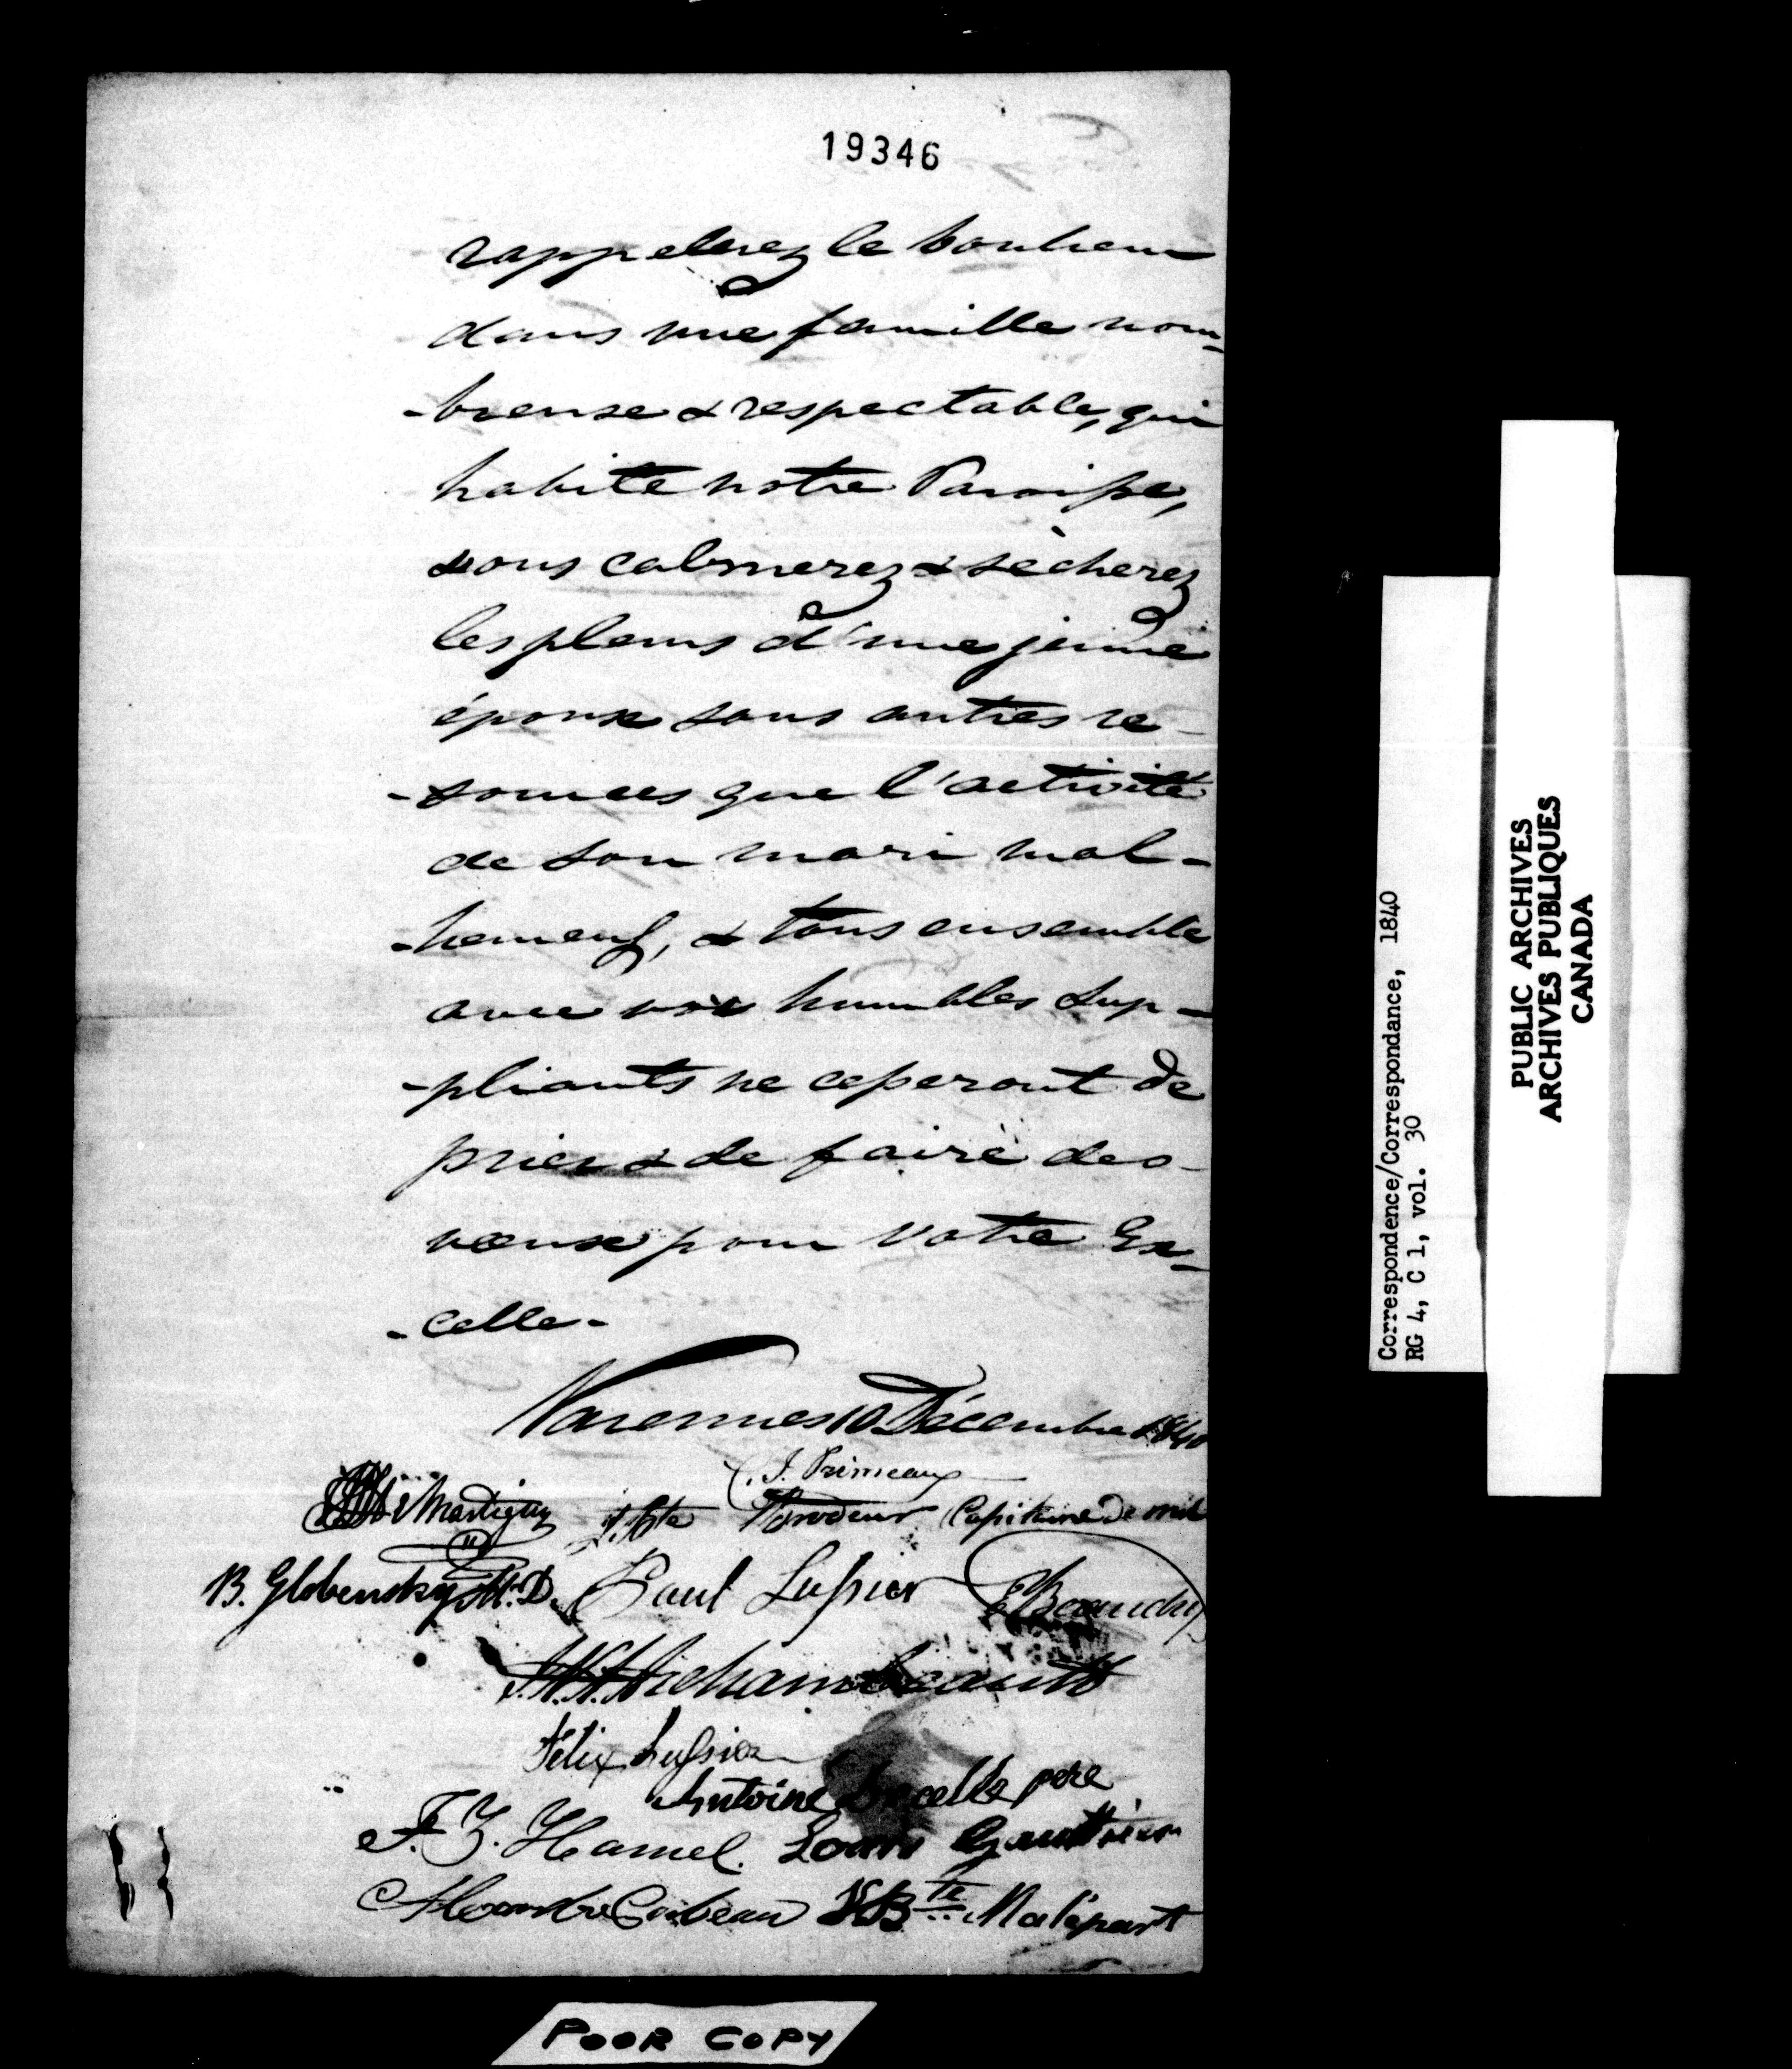 19346
rappelerez le bonheur
dans une famille nom-
-breuse & respectable, qui
habite notre Paroisse,
vous calmerez & sècherez
les pleurs d'une jeune
épouse sans autres re-
-sources que l'activité
de son mari mal-
-heureux, & tous ensemble
avec vos humbles Sup-
-pliants ne cesseront de
prier & de faire des
vœux pour Votre Ex-
-celle-
Varennes 10 Décembre 1840
Primeaux
Martigny J. Bte Brodeur Capitaine de mil
B. Globensky M.D. Paul Lussier Beaudry
Archambeault
Félix Lussier
Antoine père
F. Z. Hamel. Louis Gauthier
Alexandre Corbeau J Bte Malépart
POOR COPY
Correspondence/Correspondance, 1840
RG 4, C 1, vol. 30
PUBLIC ARCHIVES
ARCHIVES PUBLIQUES
CANADA